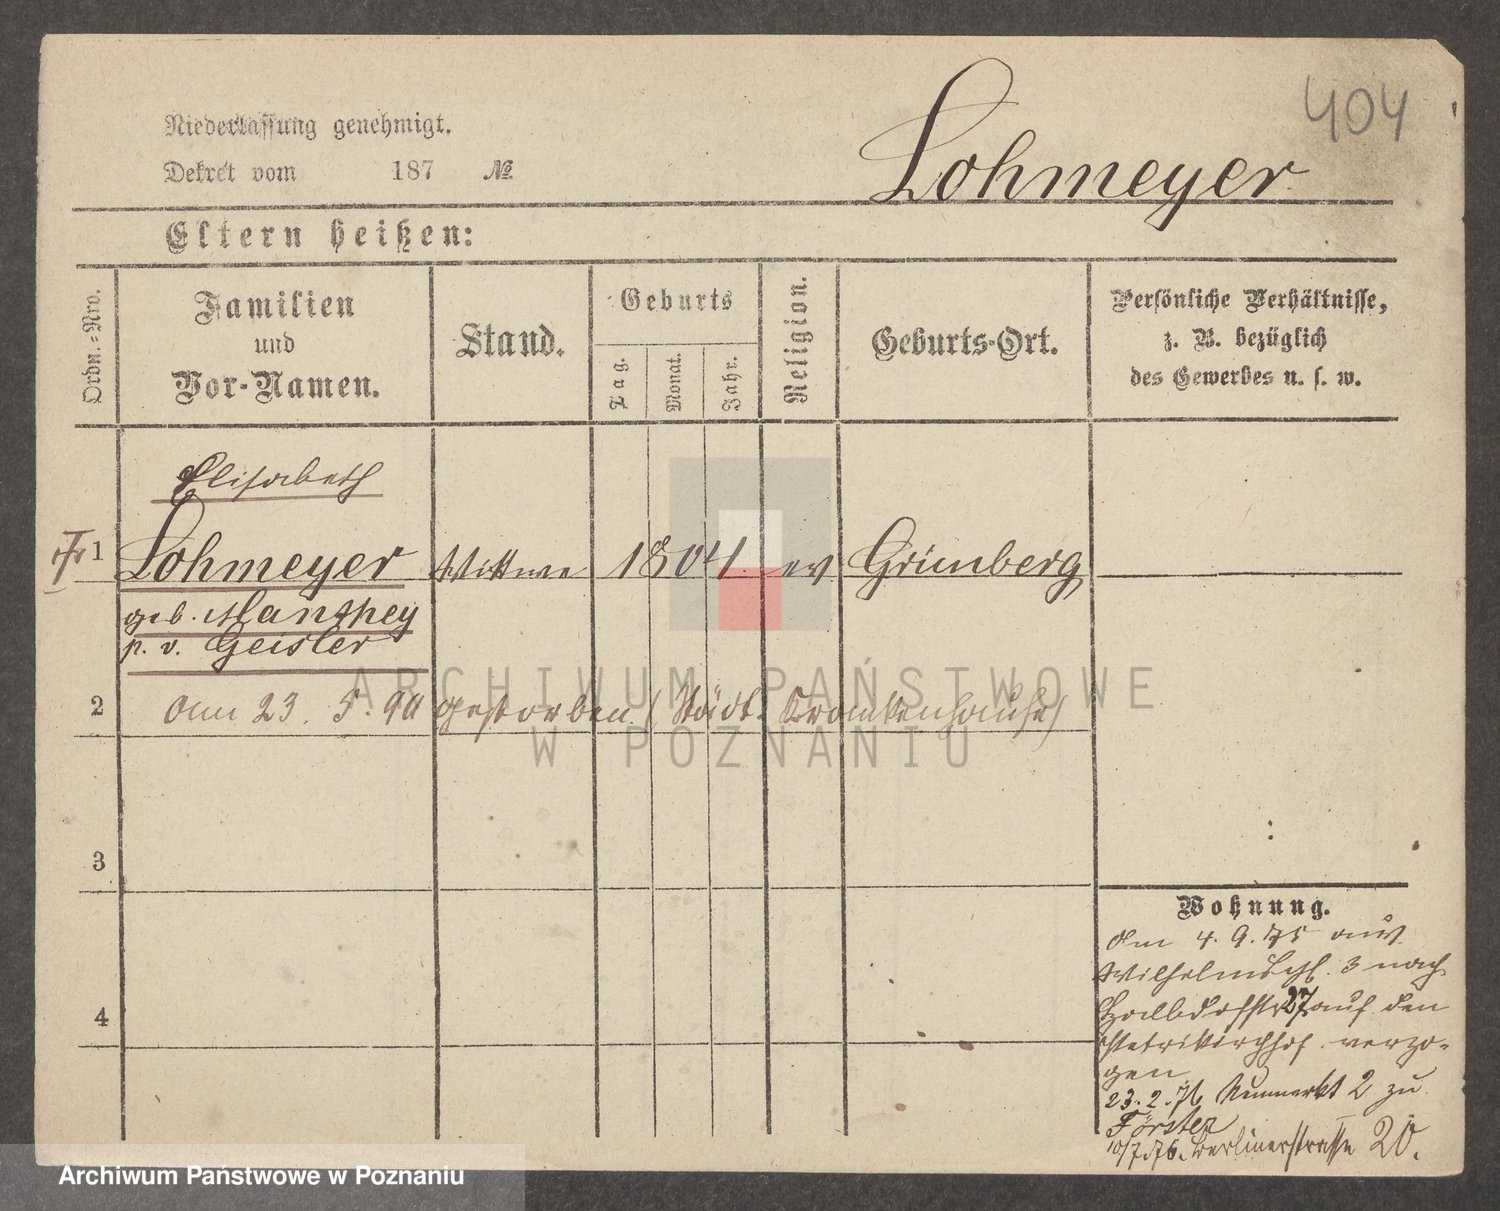 404
Niederlassung genehmigt.
Dekret vom 187 №
Lohmeyer
Eltern heißen:
Ordn.=Nro.
Familien
und
Vor-Namen.
Stand.
Geburts
Tag.
Monat.
Jahr.
Religion.
Geburts-Ort.
Persönliche Verhältnisse,
z. B. bezüglich
des Gewerbes u. s. w.
Elisabeth
1 Lohmeyer Wittwe 1804 ev Grünberg
geb. Manthey
p. v. Geisler
2 am 23. 5. 90 gestorben (Städt. Krankenhause)
3
4
Wohnung.
Am 4. 9. 75 aus
Wilhelmspl. 3 nach
Halbdorfstr 27 auf den
Petrikirchhof verzo-
gen
23. 2. 76 Neumarkt 2 zu
Förster
10/7.76. Berlinerstrasse 20.
ARCHIWUM PAŃSTWOWE
W POZNANIU
Archiwum Państwowe w Poznaniu